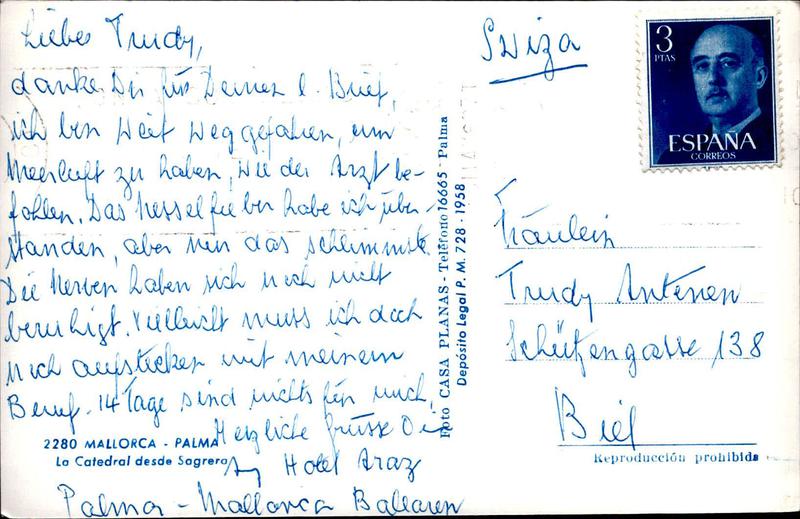 Liebes Trudy,
danke Dir für Deinen l. Brief,
ich bin weit weggefahren, um
Meerluft zu haben, wie der Arzt be-
fohlen. Das Nesselfieber habe ich über-
standen, aber nur das schlimmste.
Die Nerven haben sich noch nicht
beruhigt. Vielleicht muss ich doch
noch aufstecken mit meinem
Beruf. 14 Tage sind nichts für mich,
Herzliche Grüsse Dir
Hotel Araz
Palma - Mallorca Balearen
2280 MALLORCA - PALMA
La Catedral desde Sagrera
Foto CASA PLANAS - Teléfono 16665 - Palma
Depósito Legal P. M. 728 - 1958
Sviza
3
PTAS
ESPAÑA
CORREOS
Fräulein
Trudy Antenen
Schützengasse 138
Biel
Reproducción prohibida